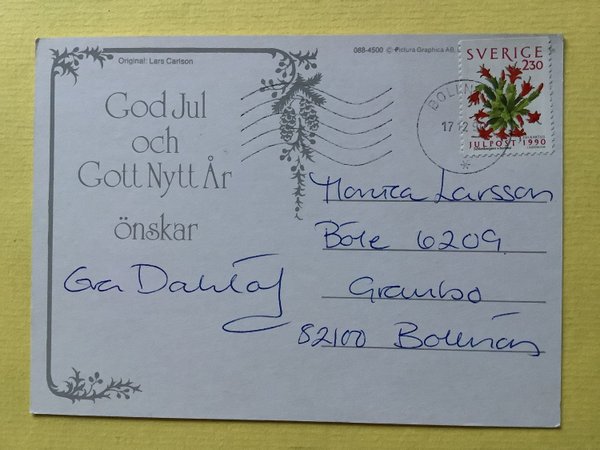 Original: Lars Carlson
088-4500 © Pictura Graphica AB,
God Jul
och
Gott Nytt År
önskar
Eva Dahlöf
SVERIGE
2.30
JULPOST 1990
17 12 90
Monica Larsson
Böle 6209
Granbo
82100 Bollnäs